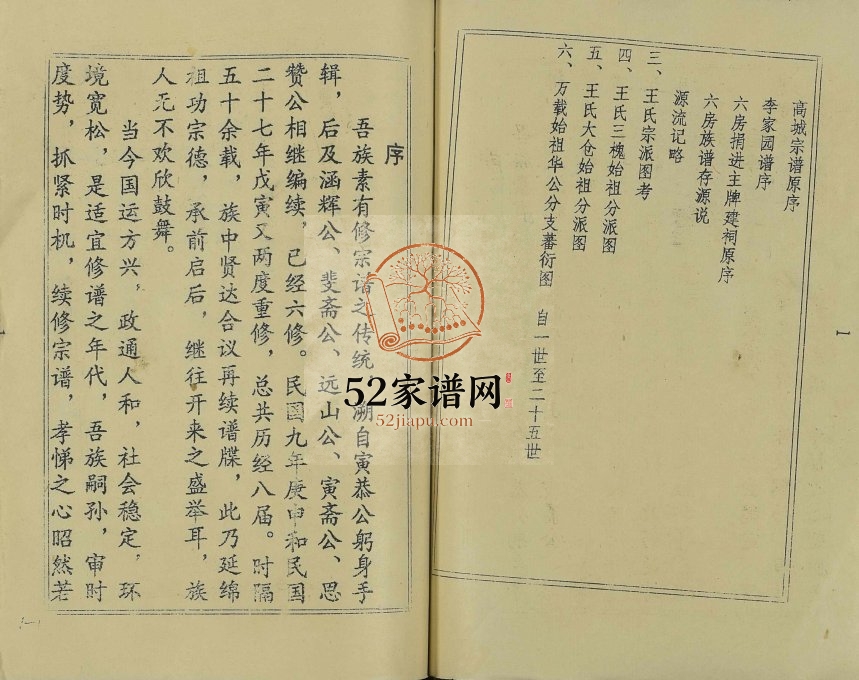 高城宗谱原序
李家园谱序
六房捐进主牌建祠原序
六房族谱存源说
源流记略
三、王氏宗派图考
四、王氏三槐始祖分派图
五、王氏大仓始祖分派图
六、万载始祖华公分支蕃衍图 自一世至二十五世
1
序
吾族素有修宗谱之传统 溯自寅恭公躬身手
辑，后及涵辉公、斐斋公、远山公、寅斋公、思
赞公相继编续，已经六修。民国九年庚申和民国
二十七年戊寅又两度重修，总共历经八届。时隔
五十余载，族中贤达合议再续谱牒，此乃延绵
祖功宗德，承前启后，继往开来之盛举耳，族
人无不欢欣鼓舞。
当今国运方兴，政通人和，社会稳定，环
境宽松，是适宜修谱之年代，吾族嗣孙，审时
度势，抓紧时机，续修宗谱，孝悌之心昭然若
52家谱网
52jiapu.com